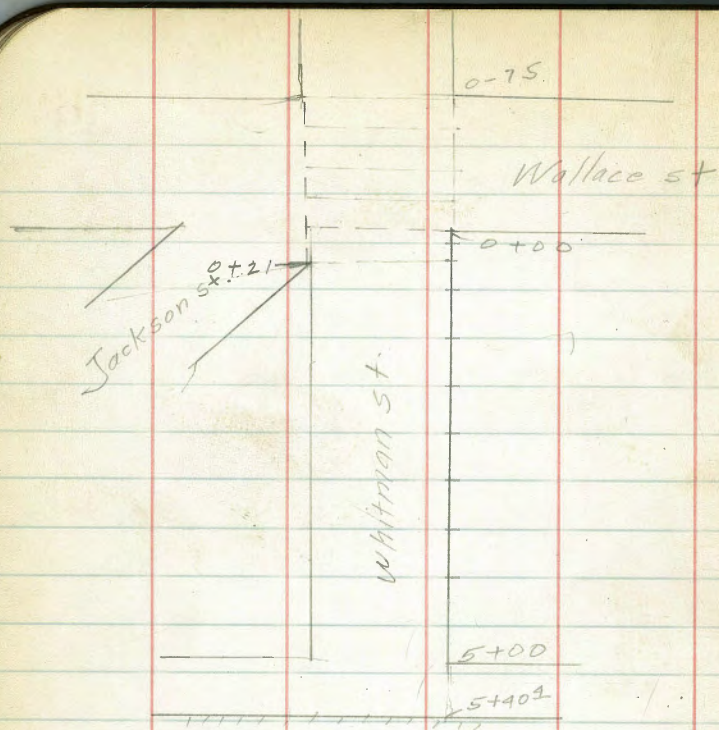 0-75.
Wallace st
0+00
0+21
Jackson st.
Whitman St.
5+00
5+40⁴